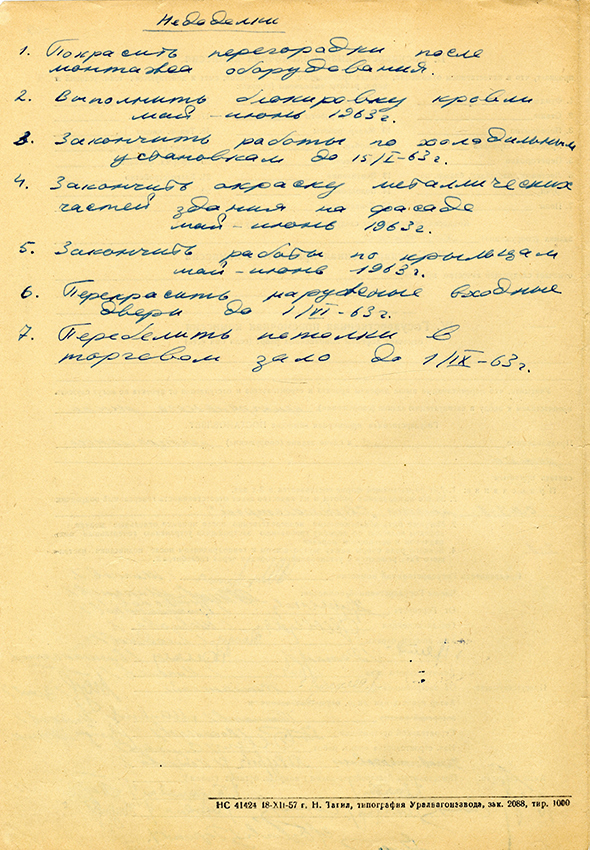 Недоделки
1. Покрасить перегородки после
монтажа оборудования.
2. Выполнить блокировку кровли
май-июнь 1963 г.
3. Закончить работы по холодильным
установкам до 15/I-63 г.
4. Закончить окраску металлических
частей здания на фасаде
май-июнь 1963 г.
5. Закончить работы по крыльцам
май-июнь 1963 г.
6. Перекрасить наружные входные
двери до 1/VI-63 г.
7. Перебелить потолки в
торговом зале до 1/IX-63 г.
НС 41424 18-XII-57 г. Н. Тагил, типография Уралвагонзавода, зак. 2088, тир. 1000